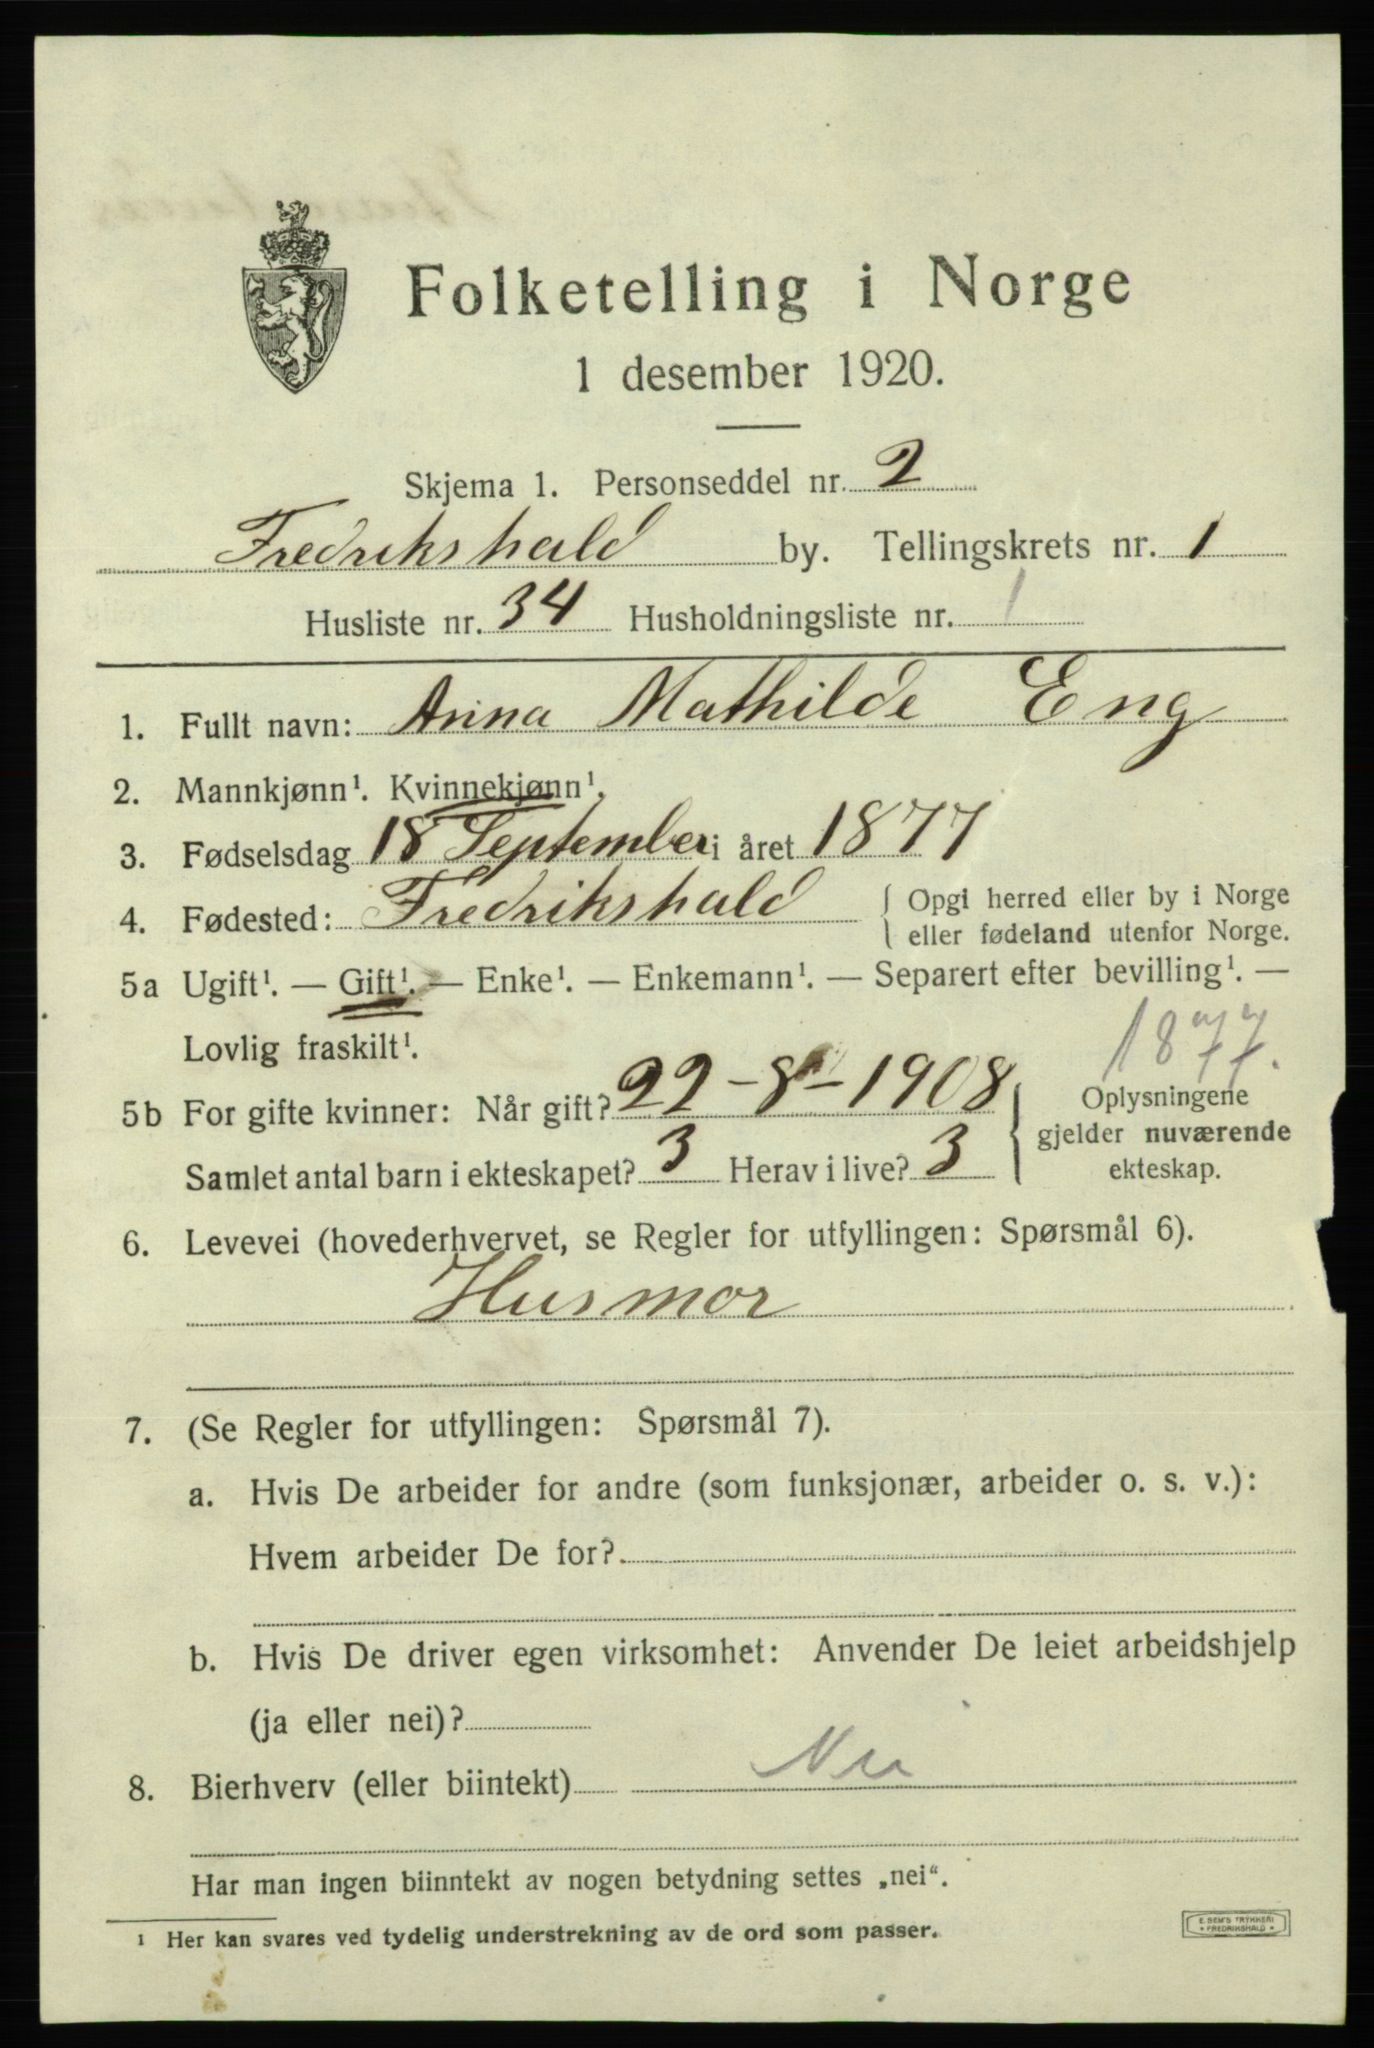 Folketelling i Norge
1 desember 1920.
Skjema 1. Personseddel nr. 2
Fredrikshald by. Tellingskrets nr. 1
Husliste nr. 34 Husholdningsliste nr. 1
1. Fullt navn: Anna Mathilde Eng
2. Mannkjønn¹. Kvinnekjønn¹.
3. Fødselsdag 18 September i året 1877
4. Fødested: Fredrikshald { Opgi herred eller by i Norge
eller fødeland utenfor Norge.
5a Ugift¹. — Gift¹. — Enke¹. — Enkemann¹. — Separert efter bevilling¹. —
Lovlig fraskilt¹.
1877.
5b For gifte kvinner: Når gift? 22-8-1908 } Oplysningene
gjelder nuværende
Samlet antal barn i ekteskapet? 3 Herav i live? 3 ekteskap.
6. Levevei (hovederhvervet, se Regler for utfyllingen: Spørsmål 6).
Husmor
7. (Se Regler for utfyllingen: Spørsmål 7).
a. Hvis De arbeider for andre (som funksjonær, arbeider o. s. v.):
Hvem arbeider De for?
b. Hvis De driver egen virksomhet: Anvender De leiet arbeidshjelp
(ja eller nei)?
8. Bierhverv (eller biintekt) Nei
Har man ingen biinntekt av nogen betydning settes „nei“.
¹ Her kan svares ved tydelig understrekning av de ord som passer.
E. SEM'S TRYKKERI
* FREDRIKSHALD *